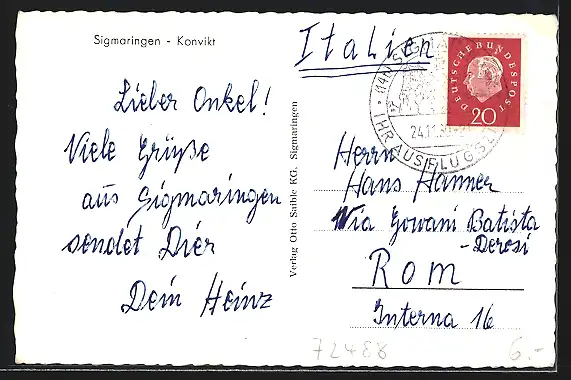 Sigmaringen - Konvikt
Lieber Onkel!
Viele Grüße
aus Sigmaringen
sendet Dier
Dein Heinz
Verlag Otto Saible KG. Sigmaringen
Italien
DEUTSCHE BUNDESPOST
20
24.11.
IHR AUSFLUGSZ
Herrn
Hans Hanner
Via Gowani Batista
-Deresi
Rom
Interna 16
72488
6.-